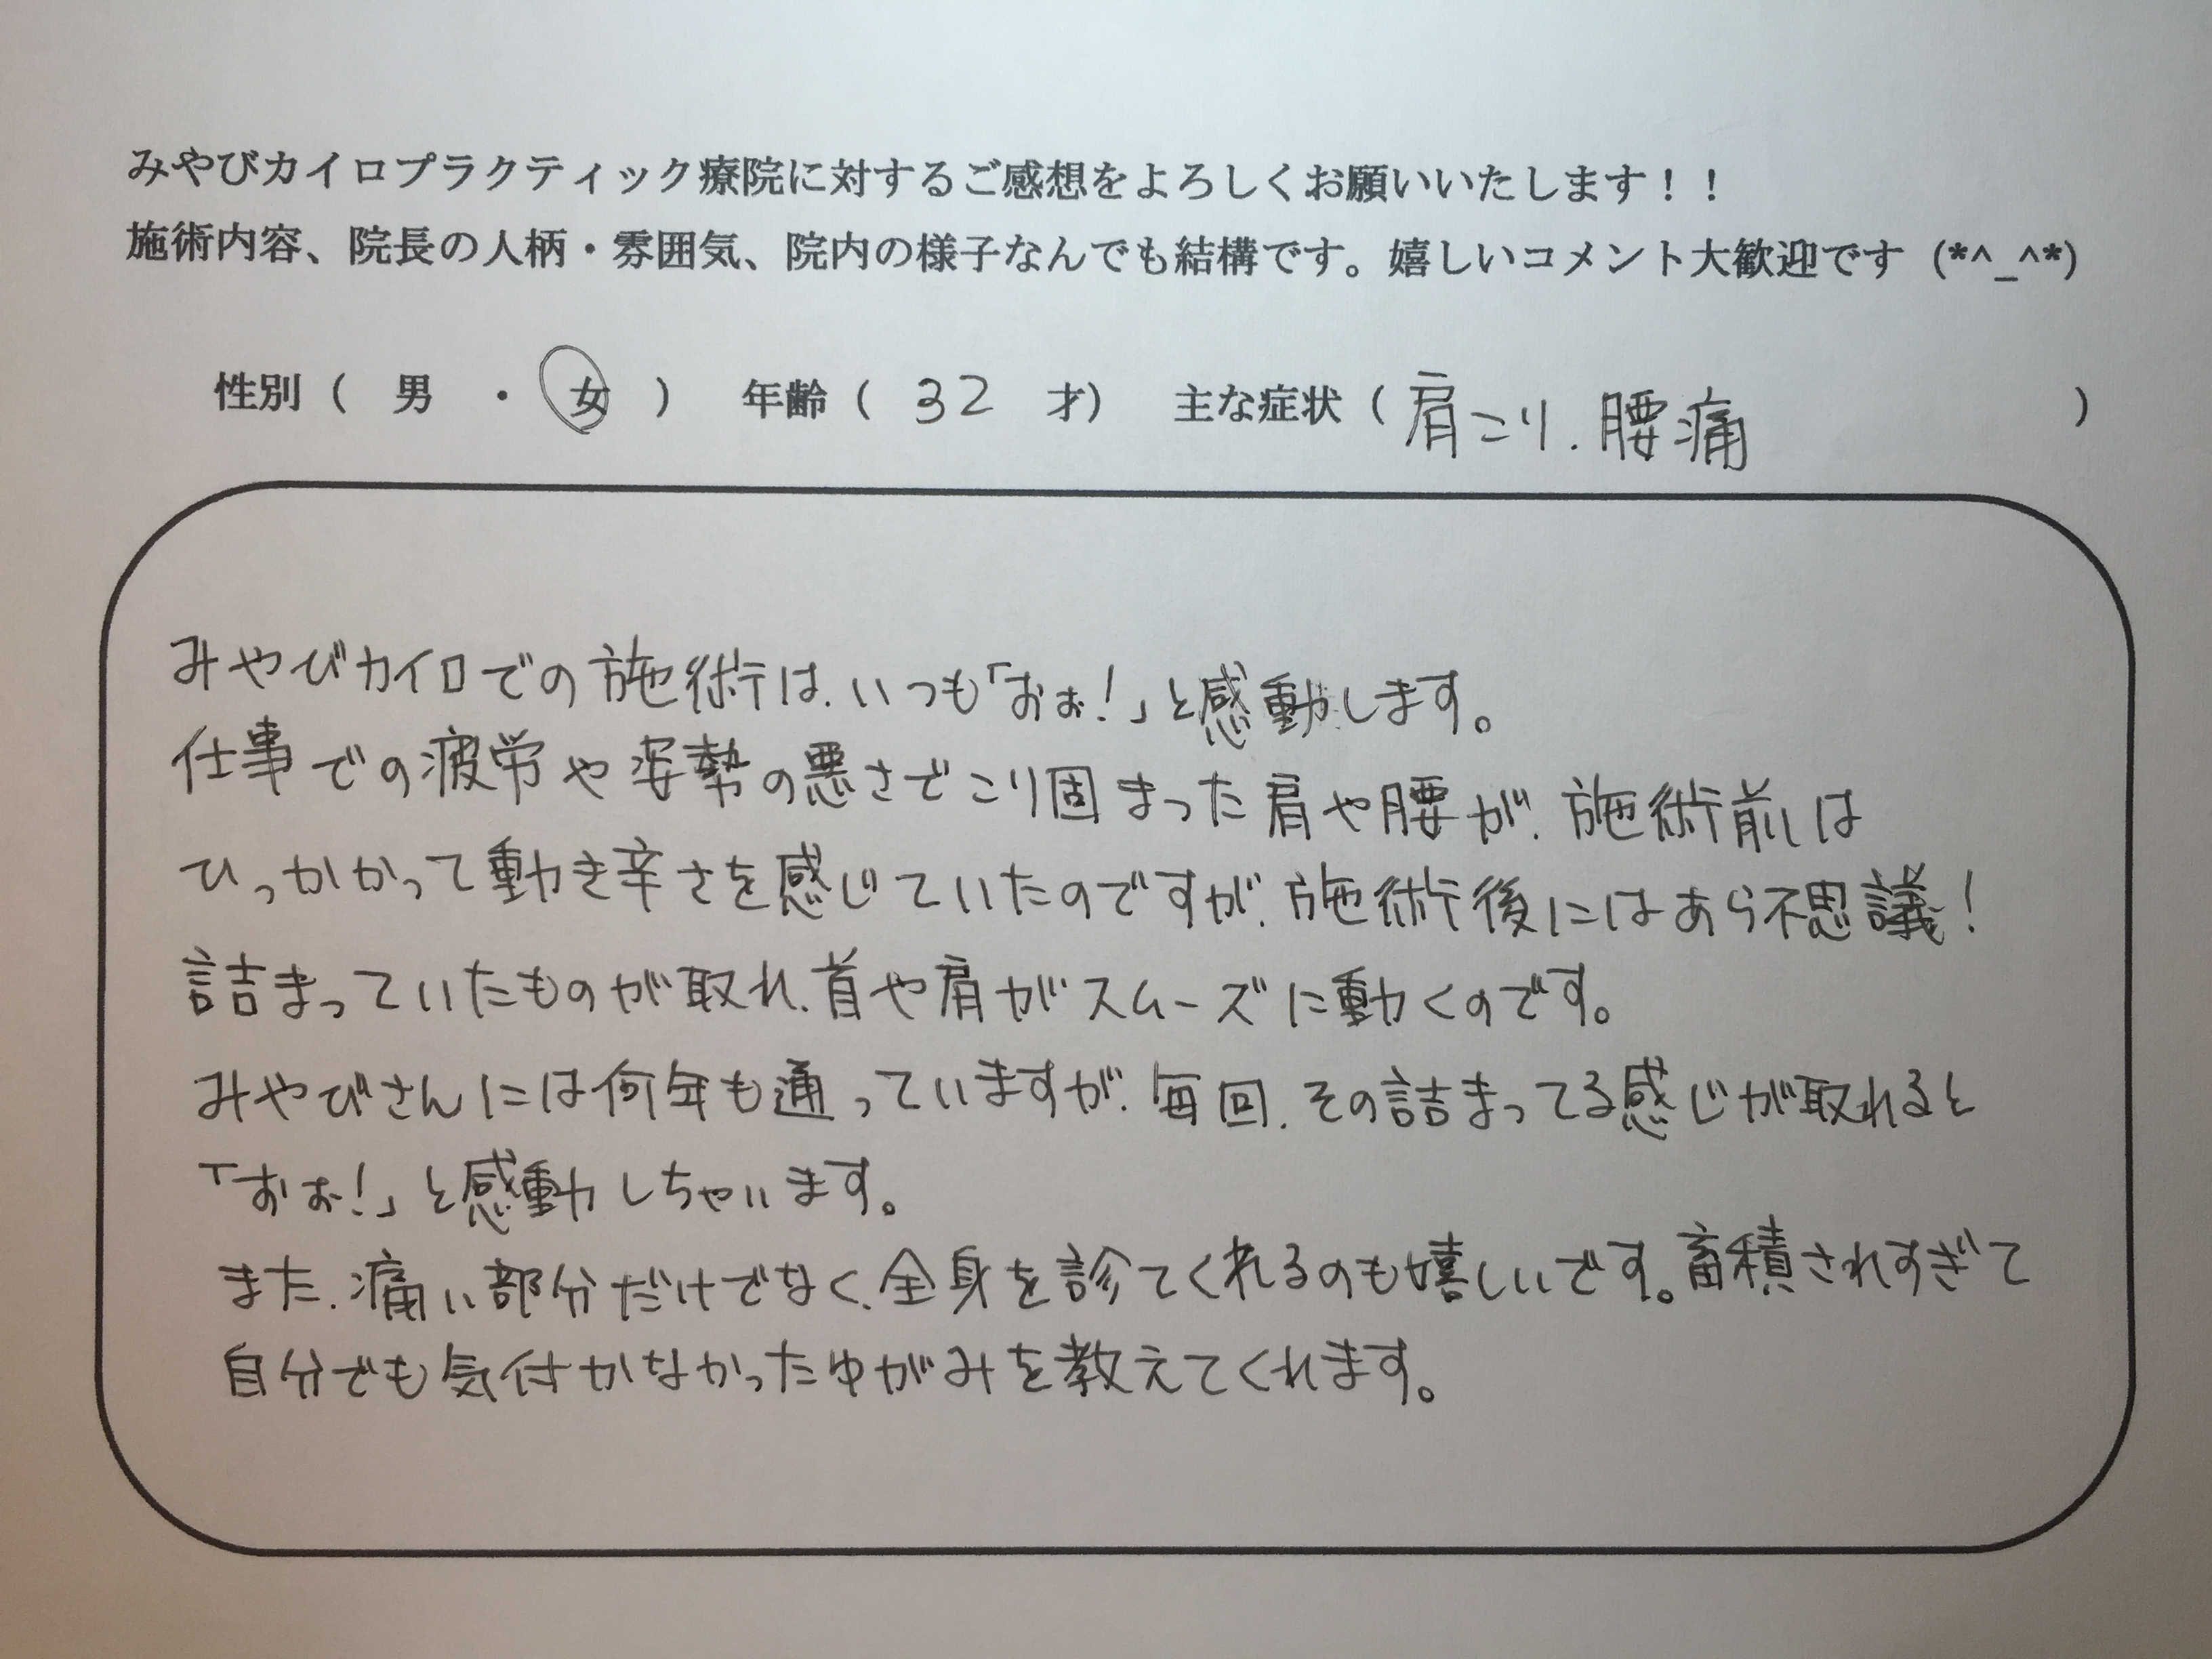 みやびカイロプラクティック療院に対するご感想をよろしくお願いいたします！！
施術内容、院長の人柄・雰囲気、院内の様子なんでも結構です。嬉しいコメント大歓迎です（*^_^*）
性別（　男　・　女　）　年齢（　32　才）　主な症状（肩こり．腰痛　）
みやびカイロでの施術は、いつも「おぉ！」と感動します。
仕事での疲労や姿勢の悪さでこり固まった肩や腰が、施術前は
ひっかかって動き辛さを感じていたのですが、施術後にはあら不思議！
詰まっていたものが取れ、首や肩がスムーズに動くのです。
みやびさんには何年も通っていますが、毎回、その詰まってる感じが取れると
「おぉ！」と感動しちゃいます。
また、痛い部分だけでなく、全身を診てくれるのも嬉しいです。畜積されすぎて
自分でも気付かなかったゆがみを教えてくれます。